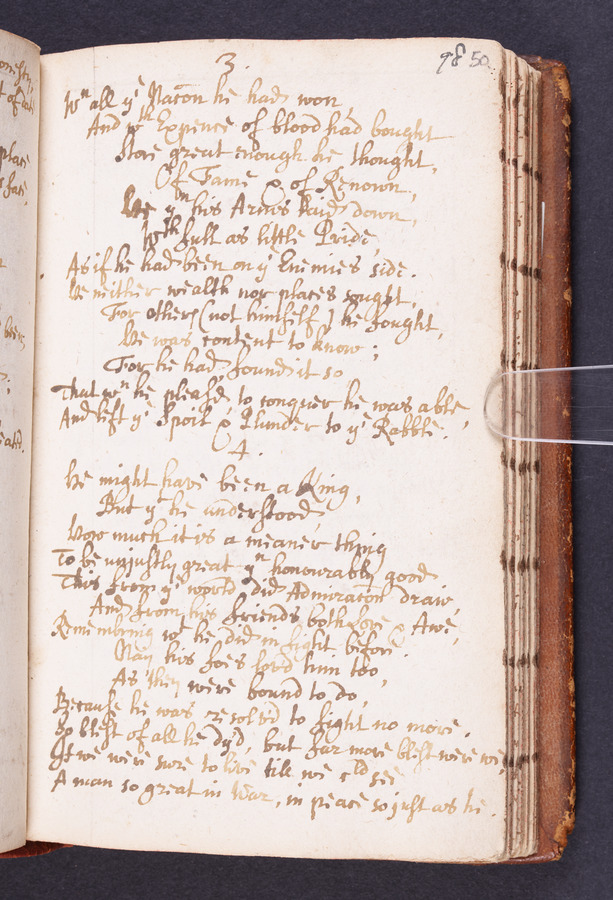 98 50
3.
Wn all ye Nacõn he had won,
And wth Expence of blood had bought
Store great enough he thought,
Of Fame & of Renown,
He yn his Arms laid down,
Wth full as little Pride,
As if he had been on ye Enemies side.
He neither wealth nor places sought,
For others (not himself) he fought,
He was content to know;
For he had found it so
That wn he pleas'd to conquer he was able,
And left ye Spoil & Plunder to ye Rabble.
4.
He might have been a King,
But yt he understood
How much it is a meaner thing
To be unjustly great yn honourably good
This from ye world did Admiracõn draw,
And from his friends both love & Awe,
Remembring wt he did in fight before.
Nay his foes lov'd him too,
As they were bound to do,
Because he was resolv'd to fight no more.
So blest of all he dy'd, but far more blest were we,
If we were sure to live till we cld see
A man so great in War, in peace so just as he.